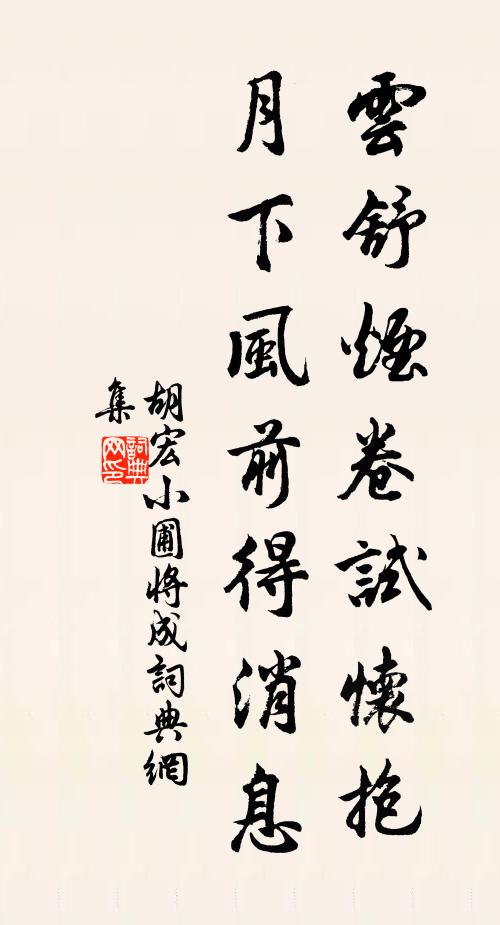 雲舒煙卷試懷抱
月下風前得消息
胡宏小圃將成詞典網
集
詞典网印